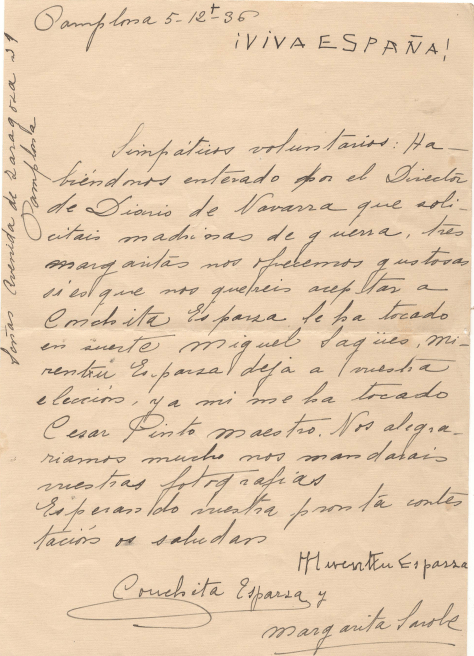 Pamplona 5-12-36
¡VIVA ESPAÑA!
Simpáticos voluntarios: Ha-
biéndonos enterado por el Director
de Diario de Navarra que soli-
citais madrinas de guerra, tres
margaritas nos ofrecemos gustosas
si es que nos quereis aceptar a
Conchita Esparza le ha tocado
en suerte Miguel Sagües, Mi-
rentxu Esparza deja a vuestra
elección, y a mi me ha tocado
Cesar Pinto maestro. Nos alegra-
riamos mucho nos mandarais
vuestras fotografias
Esperando vuestra pronta contes
tación os saludan
Mirentxu Esparza
Conchita Esparza y
Margarita Sarobe
Señas Avenida de Zaragoza 29
Pamplona